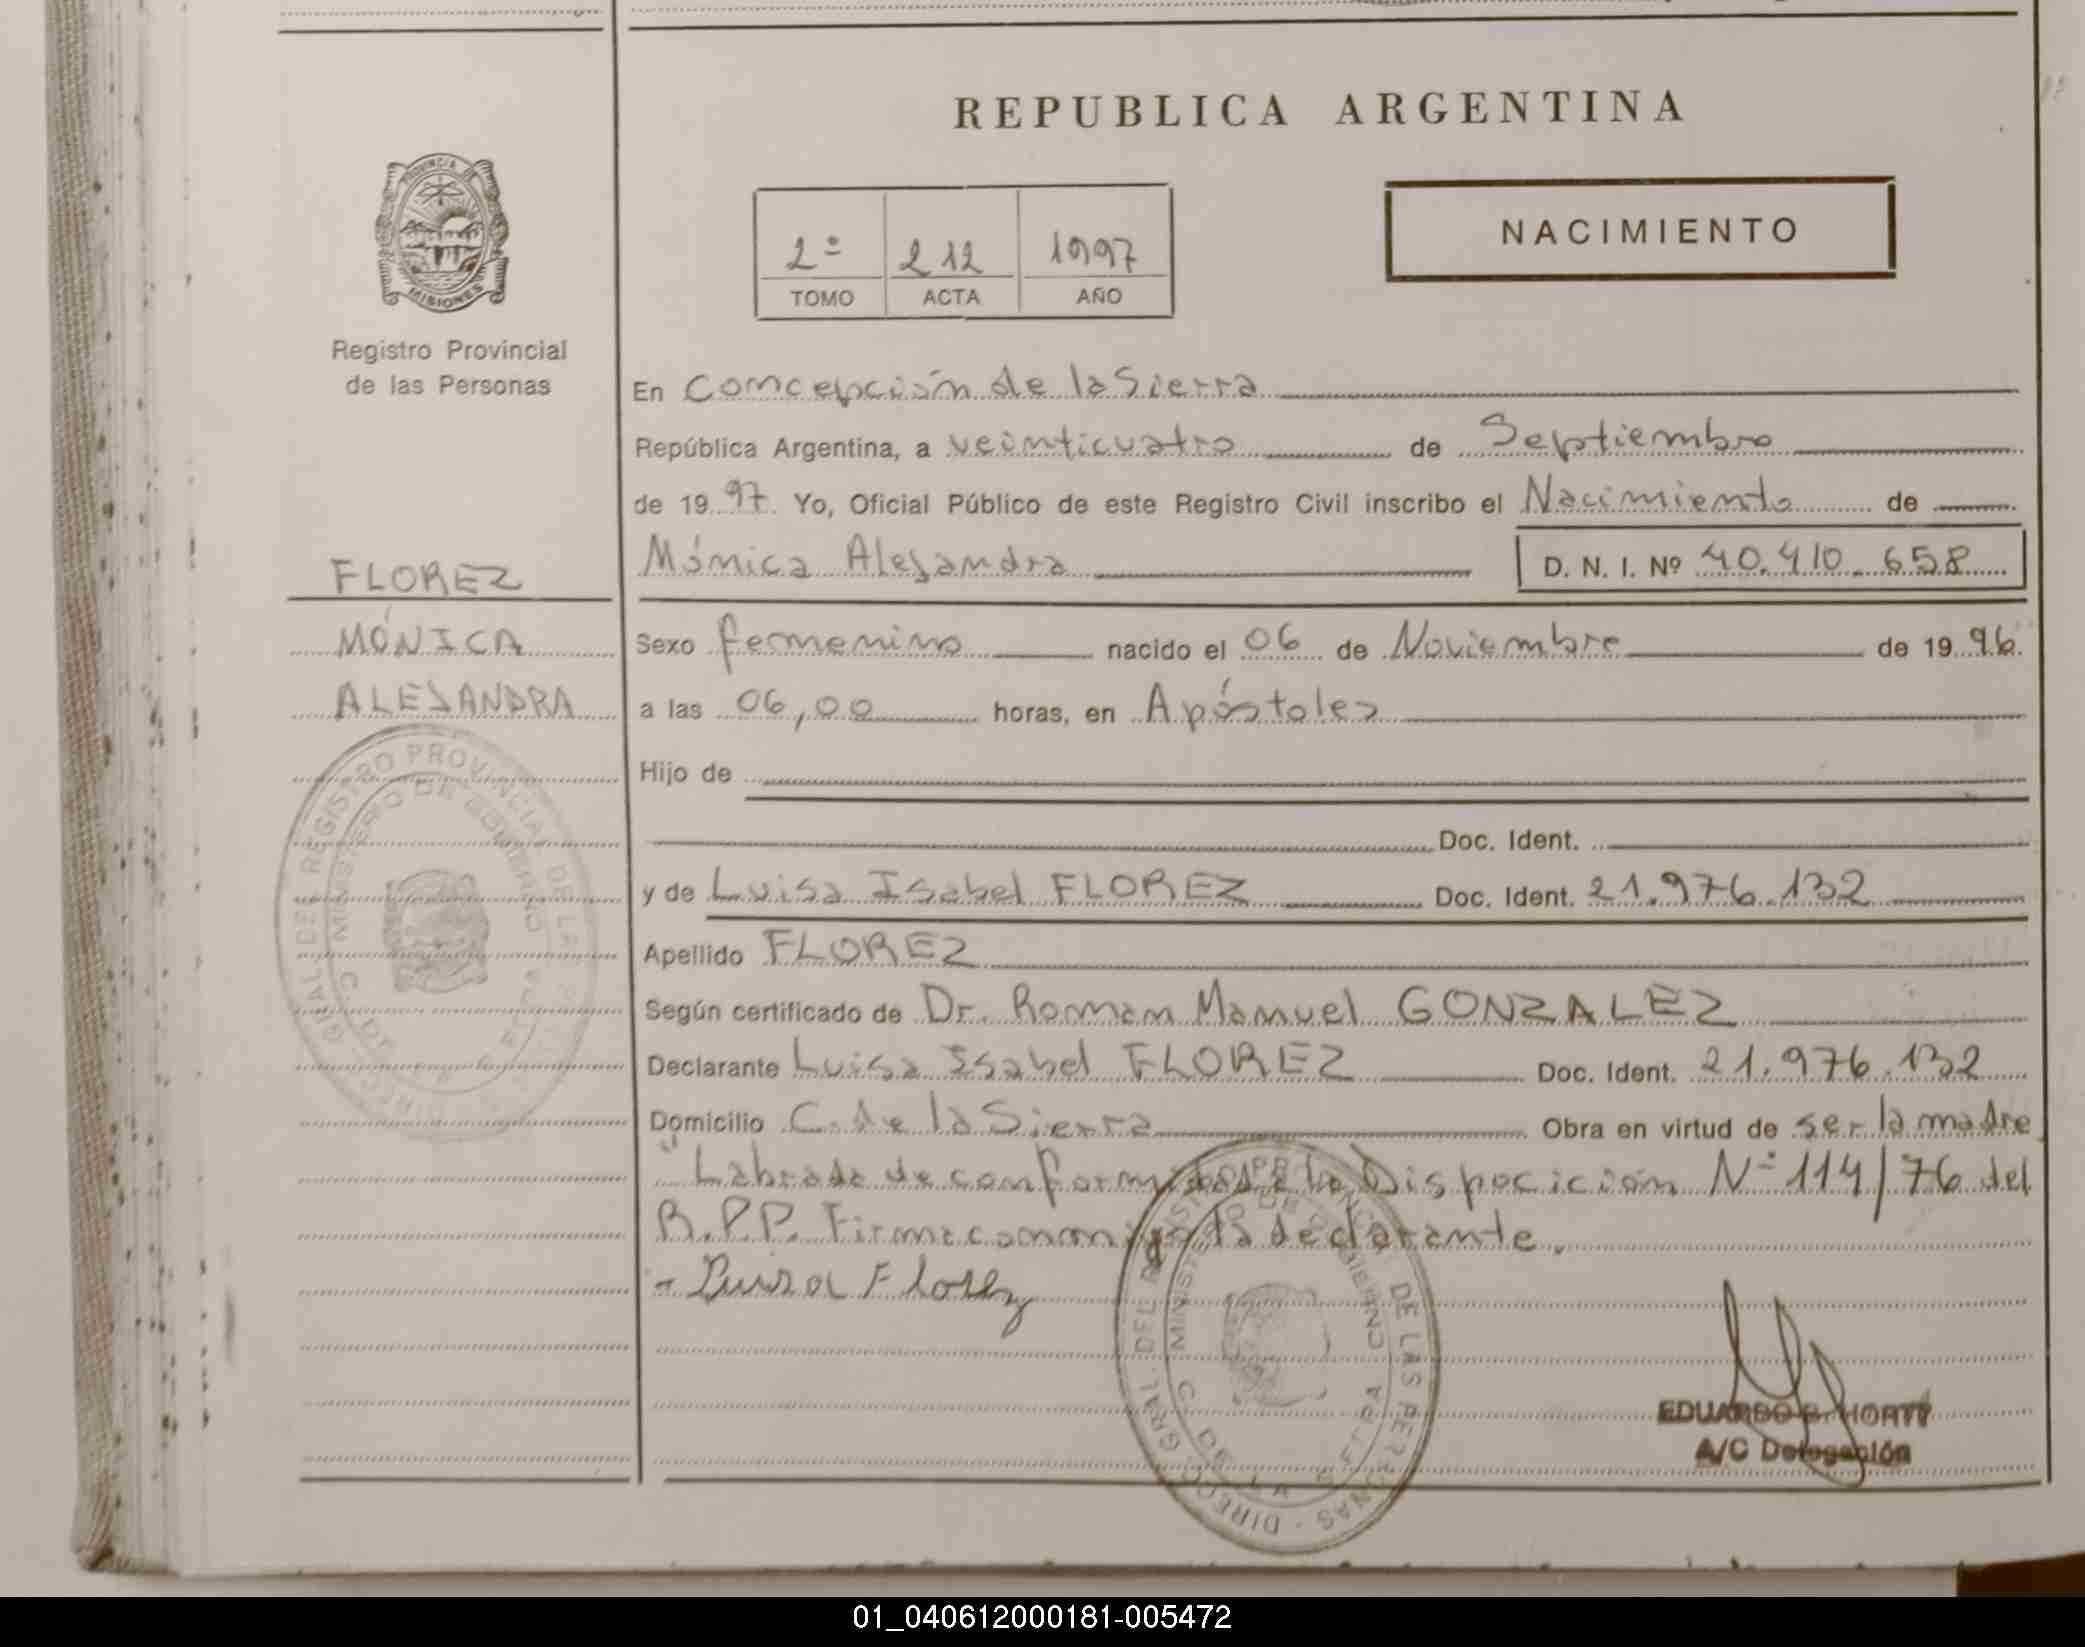 REPUBLICA ARGENTINA
PROVINCIA DE
MISIONES
Registro Provincial
de las Personas
NACIMIENTO
2º 212 1997
TOMO ACTA AÑO
En Concepción de la Sierra
República Argentina, a veinticuatro de Septiembre
de 1997 Yo, Oficial Público de este Registro Civil inscribo el Nacimiento de
Mónica Alejandra D. N. I. Nº 40.410.658
FLOREZ
MÓNICA
ALEJANDRA
Sexo femenino nacido el 06 de Noviembre de 1996.
a las 06,00 horas, en Apóstoles
Hijo de
Doc. Ident.
y de Luisa Isabel FLOREZ Doc. Ident. 21.976.132
Apellido FLOREZ
Según certificado de Dr. Roman Manuel GONZALEZ
Declarante Luisa Isabel FLOREZ Doc. Ident. 21.976.132
Domicilio C. de la Sierra Obra en virtud de ser la madre
"Labrada de conformidad a la Disposición Nº 114/76 del
R.P.P. Firma conmigo la declarante.
- Luisa Florez
EDUARDO HORTT
A/C Delegación
DIRECC. GRAL. DEL REGISTRO PROVINCIAL DE LAS PERSONAS
MINISTERIO DE GOBIERNO
01_040612000181-005472